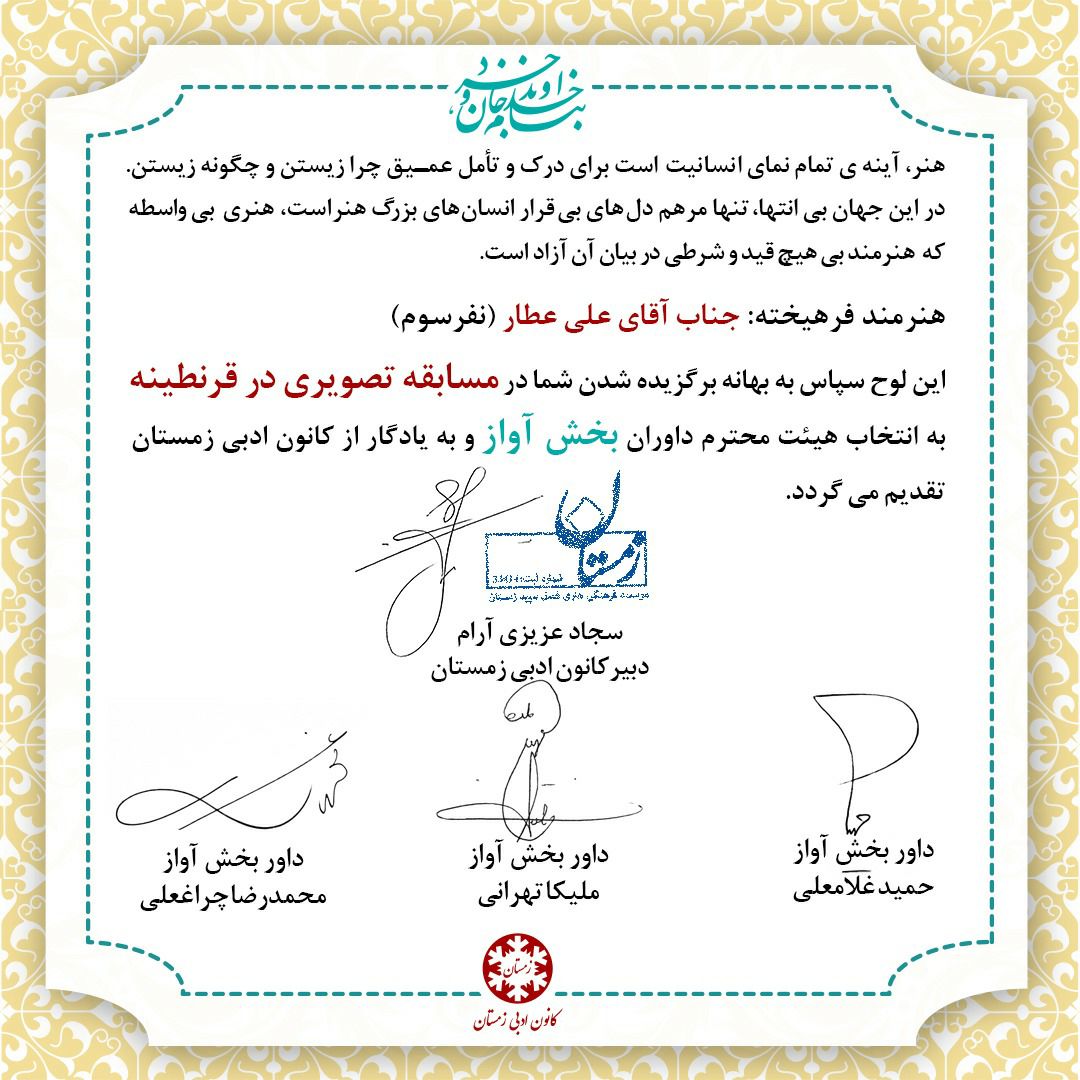 بنام خداوند جان و خرد
هنر، آینه ی تمام نمای انسانیت است برای درک و تأمل عمـیق چرا زیستن و چگونه زیستن.
در این جهان بی انتها، تنها مرهم دل های بی قرار انسان‌های بزرگ هنر است، هنری بی واسطه
که هنرمند بی هیچ قید و شرطی در بیان آن آزاد است.
هنرمند فرهیخته: جناب آقای علی عطار (نفرسوم)
این لوح سپاس به بهانه برگزیده شدن شما در مسابقه تصویری در قرنطینه
به انتخاب هیئت محترم داوران بخش آواز و به یادگار از کانون ادبی زمستان
تقدیم می گردد.
زمستان
شماره ثبت:
موسسه فرهنگی هنری فصل سپید زمستان
سجاد عزیزی آرام
دبیر کانون ادبی زمستان
داور بخش آواز
حمید غلامعلی
داور بخش آواز
ملیکا تهرانی
داور بخش آواز
محمدرضا چراغعلی
زمستان
کانون ادبی زمستان